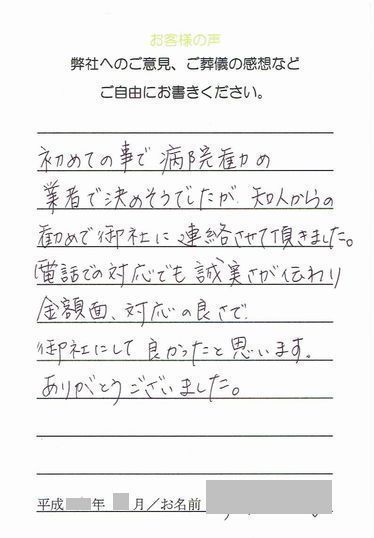 お客様の声
弊社へのご意見、ご葬儀の感想など
ご自由にお書きください。
初めての事で病院勧め
業者で決めそうでしたが、知人からの
勧めで御社に連絡させて頂きました。
電話での対応でも誠実さが伝わり
金額面、対応の良さで
御社にして良かったと思います。
ありがとうございました。
平成 年 月／お名前